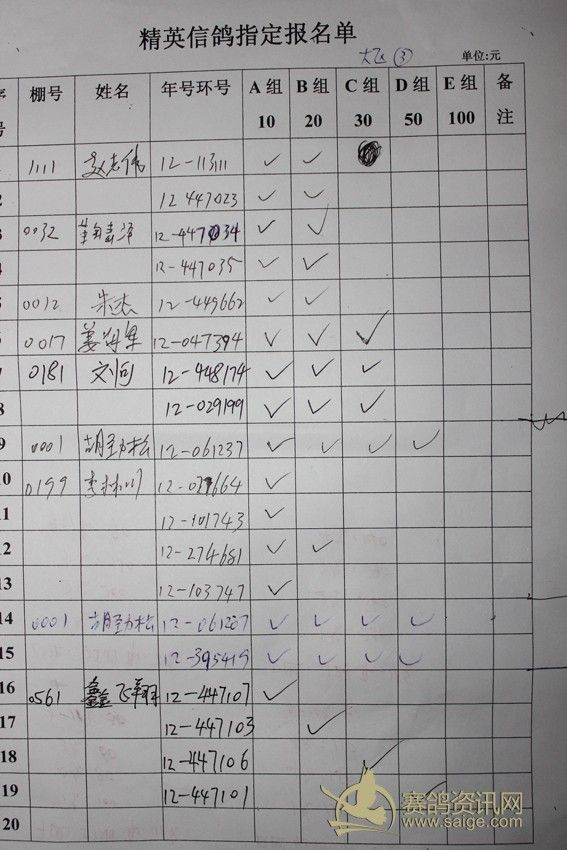 精英信鸽指定报名单
大飞 ③ 单位:元
序号 棚号 姓名 年号环号 A 组 10 B 组 20 C 组 30 D 组 50 E 组 100 备注
1 1111 赵志伟 12-11311 ✓ ✓
2 12 447023 ✓ ✓
3 0032 12-447034 ✓ ✓
4 12-447035 ✓ ✓
5 0012 朱杰 12-449662 ✓ ✓
6 0017 12-047394 ✓ ✓ ✓
7 0181 文问 12-448174 ✓ ✓ ✓
8 12-029199 ✓ ✓ ✓
9 0001 胡劲松 12-061237 ✓ ✓ ✓ ✓
10 0199 李林川 12-027664 ✓
11 12-101743 ✓
12 12-274681 ✓ ✓
13 12-103747 ✓
14 0001 胡劲松 12-061207 ✓ ✓ ✓ ✓
15 12-395419 ✓ ✓ ✓ ✓
16 0561 鑫飞翔 12-447107 ✓
17 12-447103 ✓
18 12-447106 ✓
19 12-447101 ✓
20
赛鸽资讯网
www.saige.com